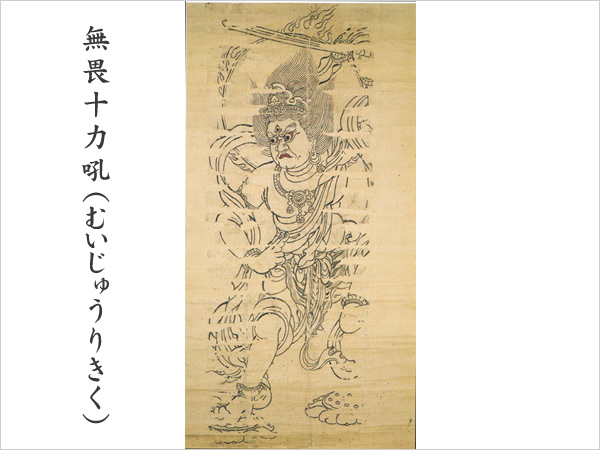 無畏十力吼(むいじゅうりきく)